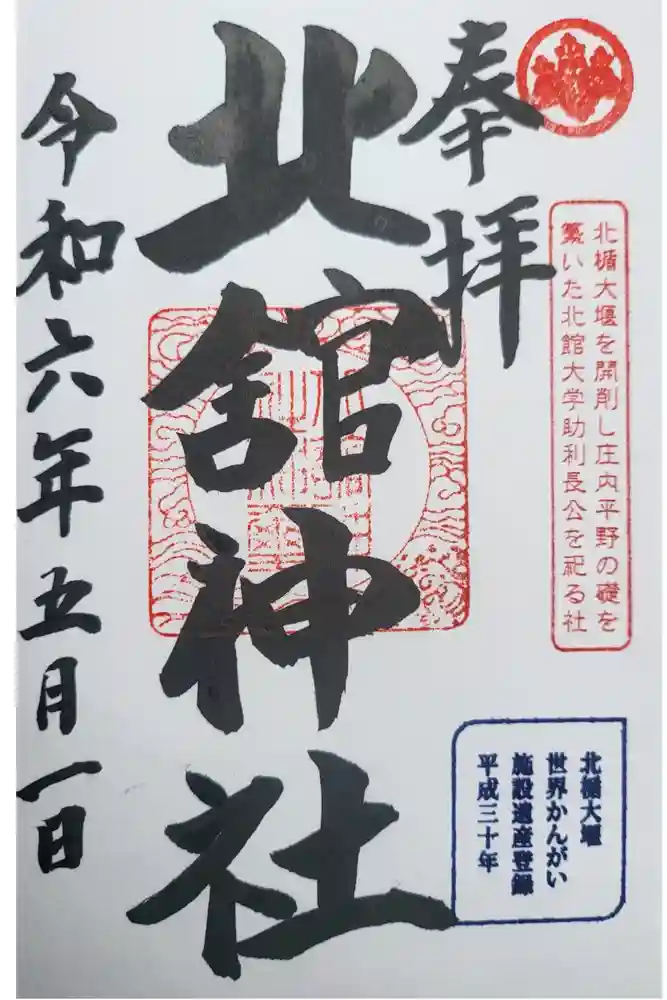 奉拝
北楯大堰を開削し庄内平野の礎を
築いた北館大学助利長公を祀る社
北舘神社
北楯大堰
世界かんがい
施設遺産登録
平成三十年
令和六年五月一日